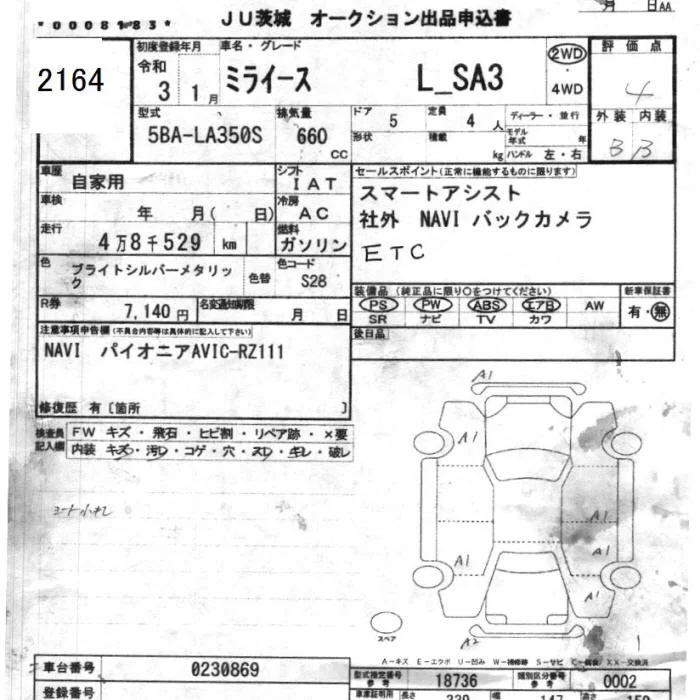 *0008183*
JU茨城 オークション出品申込書
月 日 AA
2164
初度登録年月
令和
3 1 月
車名・グレード
ミライース L_SA3
2WD
・
4WD
評価点
4
外装 内装
B B
型式
5BA-LA350S
排気量
660
CC
ドア
5
定員
4 人
ディーラー・並行
形状
積載
kg
モデル年式 年
ハンドル 左・右
車歴
自家用
シフト
I A T
車検
年 月( 日)
冷房
A C
走行
4万8千529 km
燃料
ガソリン
色
ブライトシルバーメタリック
色替
色コード
S28
R券
7,140 円
名変通知期限
月 日
セールスポイント(正常に機能するものに限ります)
スマートアシスト
社外 NAVI バックカメラ
ETC
装備品(純正品に限り○をつけてください)
PS PW ABS エアB AW
SR ナビ TV カワ
新車保証書
有・無
後日品
注意事項申告欄(不具合内容等は具体的に記入して下さい)
NAVI パイオニアAVIC-RZ111
修復歴 有〔箇所 〕
検査員記入欄
FW キズ・飛石・ヒビ割・リペア跡・×要
内装 キズ・汚レ・コゲ・穴・スレ・キレ・破レ
A1
A1
A1
A1
A1
A1
A1
A2
スペア
A-キズ E-エクボ U-凹み W-補修跡 S-サビ C-腐食 XX-交換済
車台番号
0230869
型式指定番号
参考
18736
類別区分番号
参考
0002
登録番号
車庫証明用
長さ
339
147
高さ
150